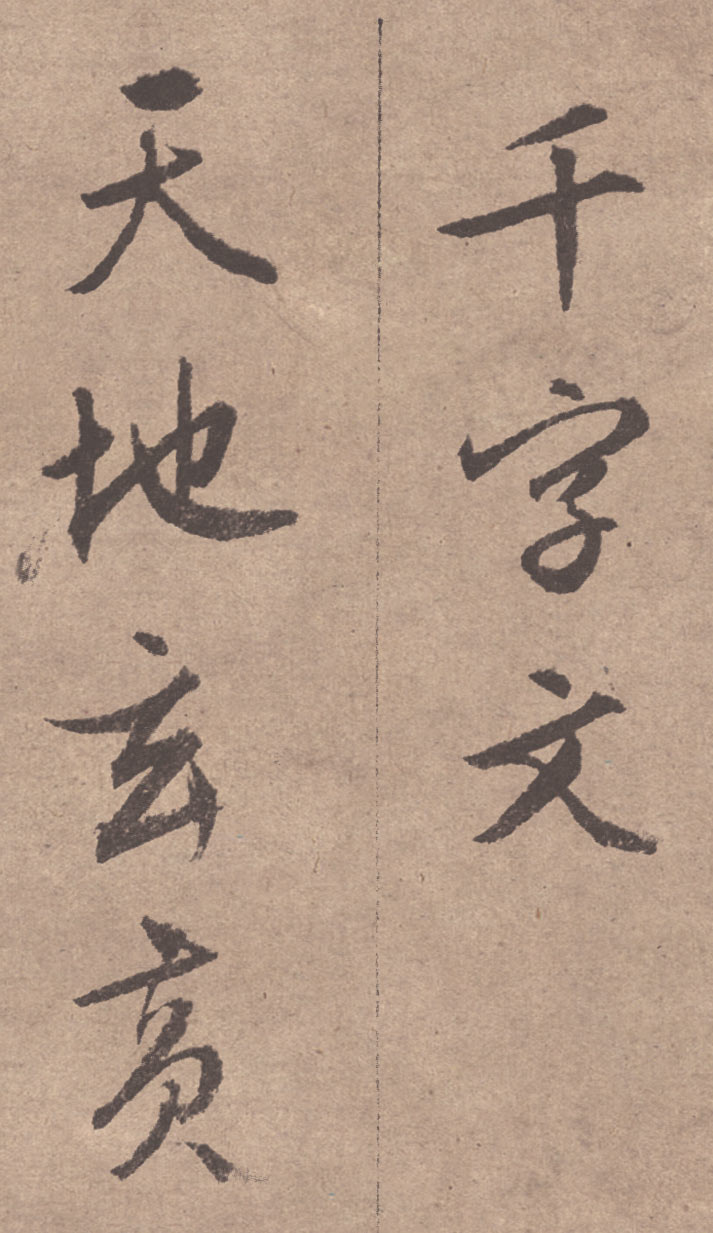 千字文
天地玄黃